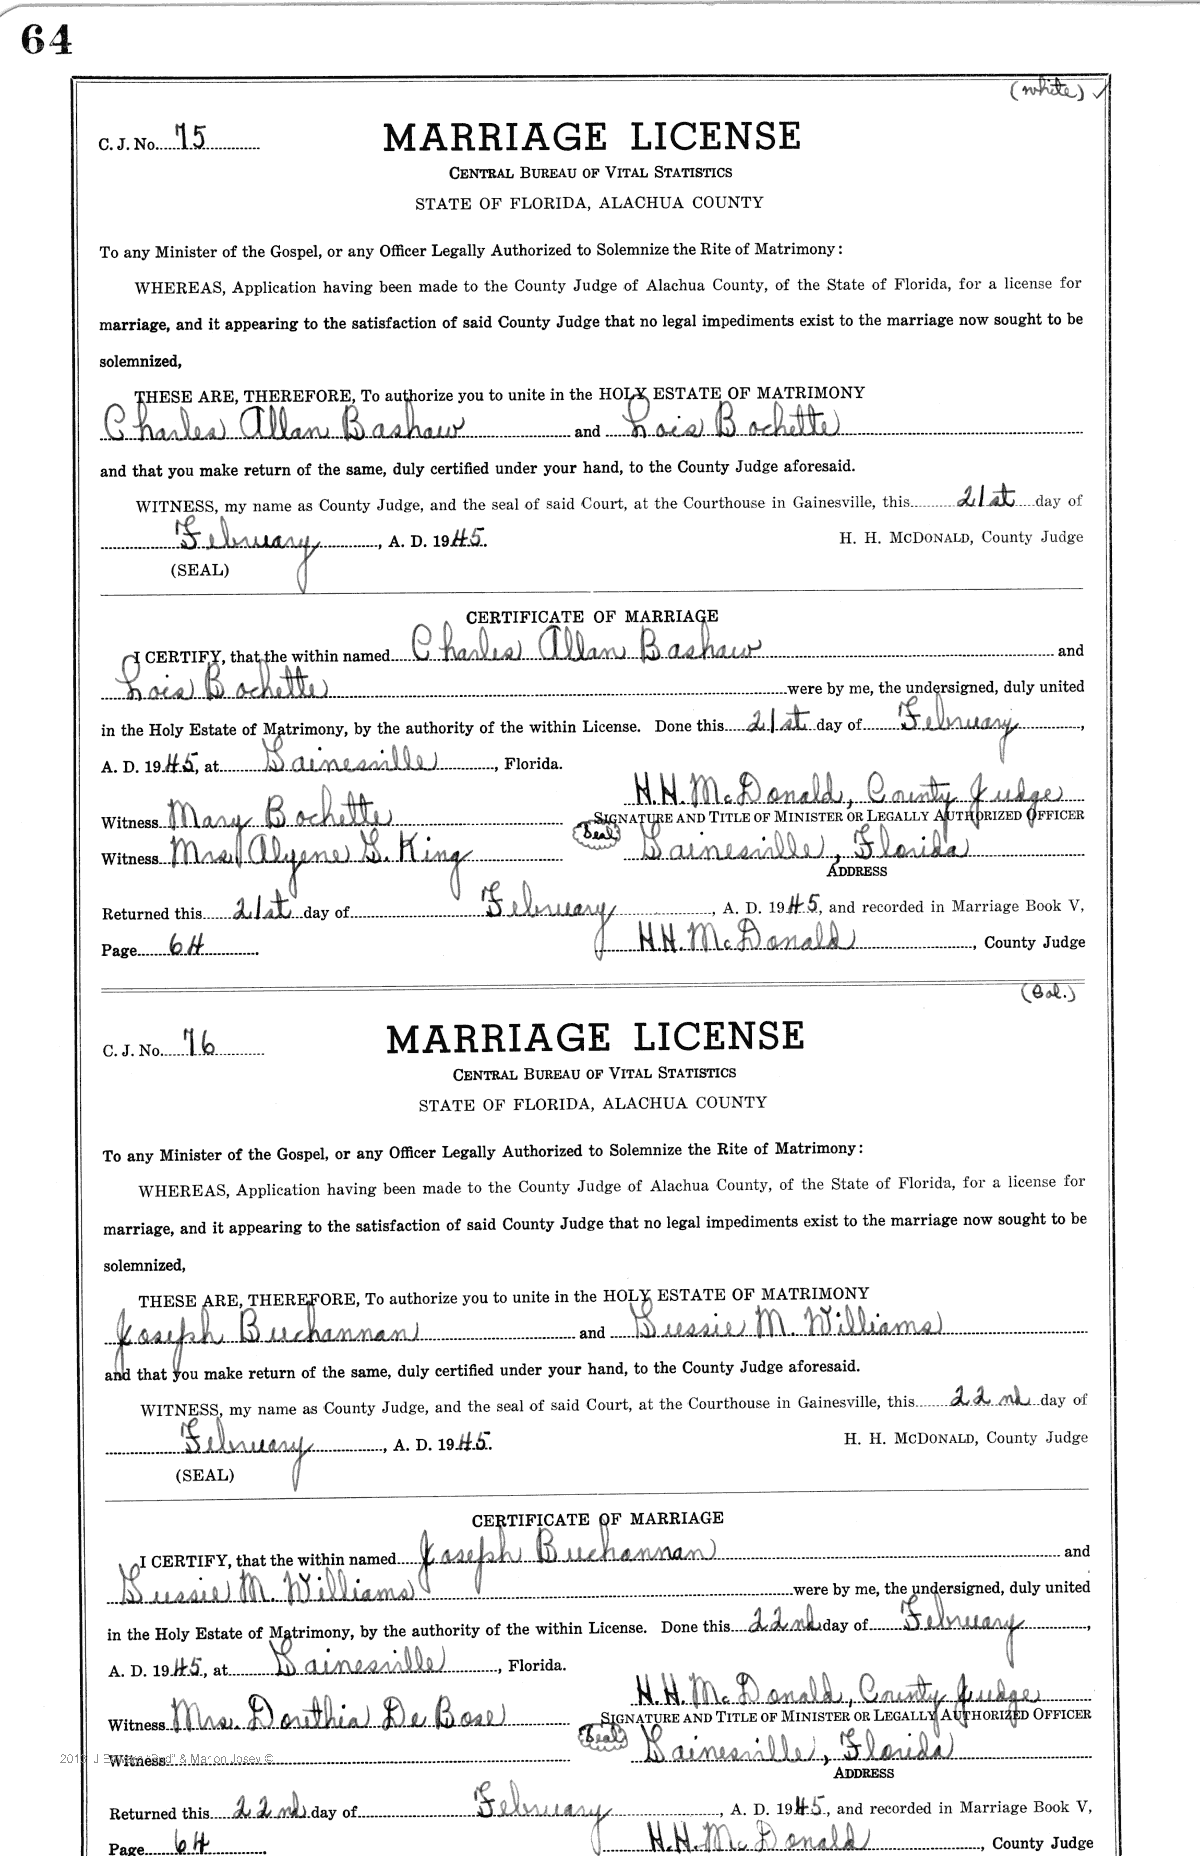 64
(white) ✓
C. J. No. 75
MARRIAGE LICENSE
CENTRAL BUREAU OF VITAL STATISTICS
STATE OF FLORIDA, ALACHUA COUNTY
To any Minister of the Gospel, or any Officer Legally Authorized to Solemnize the Rite of Matrimony:
WHEREAS, Application having been made to the County Judge of Alachua County, of the State of Florida, for a license for
marriage, and it appearing to the satisfaction of said County Judge that no legal impediments exist to the marriage now sought to be
solemnized,
THESE ARE, THEREFORE, To authorize you to unite in the HOLY ESTATE OF MATRIMONY
Charles Allan Bashaw and Lois Bochette
and that you make return of the same, duly certified under your hand, to the County Judge aforesaid.
WITNESS, my name as County Judge, and the seal of said Court, at the Courthouse in Gainesville, this 21st day of
February, A. D. 1945. H. H. MCDONALD, County Judge
(SEAL)
CERTIFICATE OF MARRIAGE
I CERTIFY, that the within named Charles Allan Bashaw and
Lois Bochette were by me, the undersigned, duly united
in the Holy Estate of Matrimony, by the authority of the within License. Done this 21st day of February,
A. D. 1945, at Gainesville, Florida.
H. H. McDonald, County Judge
Witness Mary Bochette SIGNATURE AND TITLE OF MINISTER OR LEGALLY AUTHORIZED OFFICER
Witness Mrs. Alyene G. King (Seal) Gainesville, Florida
ADDRESS
Returned this 21st day of February, A. D. 1945, and recorded in Marriage Book V,
Page 64 H. H. McDonald, County Judge
(Col.)
C. J. No. 76
MARRIAGE LICENSE
CENTRAL BUREAU OF VITAL STATISTICS
STATE OF FLORIDA, ALACHUA COUNTY
To any Minister of the Gospel, or any Officer Legally Authorized to Solemnize the Rite of Matrimony:
WHEREAS, Application having been made to the County Judge of Alachua County, of the State of Florida, for a license for
marriage, and it appearing to the satisfaction of said County Judge that no legal impediments exist to the marriage now sought to be
solemnized,
THESE ARE, THEREFORE, To authorize you to unite in the HOLY ESTATE OF MATRIMONY
Joseph Buchannan and Gussie M. Williams
and that you make return of the same, duly certified under your hand, to the County Judge aforesaid.
WITNESS, my name as County Judge, and the seal of said Court, at the Courthouse in Gainesville, this 22nd day of
February, A. D. 1945. H. H. MCDONALD, County Judge
(SEAL)
CERTIFICATE OF MARRIAGE
I CERTIFY, that the within named Joseph Buchannan and
Gussie M. Williams were by me, the undersigned, duly united
in the Holy Estate of Matrimony, by the authority of the within License. Done this 22nd day of February,
A. D. 1945, at Gainesville, Florida.
H. H. McDonald, County Judge
Witness Mrs. Dorithia De Bose SIGNATURE AND TITLE OF MINISTER OR LEGALLY AUTHORIZED OFFICER
Witness (Seal) Gainesville, Florida
ADDRESS
Returned this 22nd day of February, A. D. 1945, and recorded in Marriage Book V,
Page 64 H. H. McDonald, County Judge